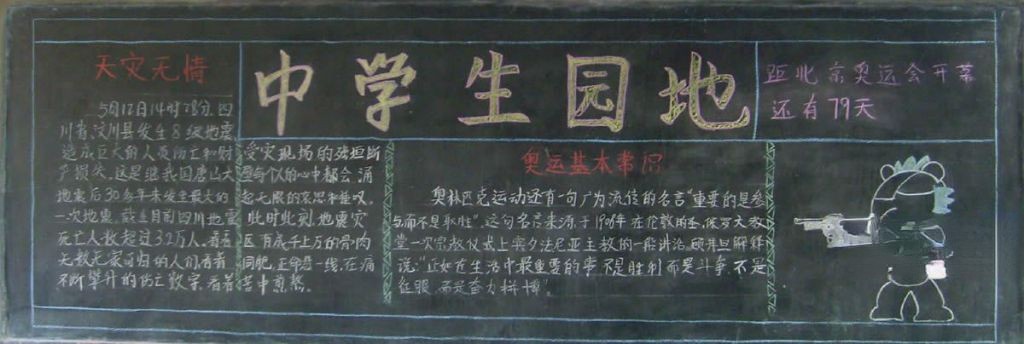 天灾无情
5月12日14时28分,四
川省汶川县发生8级地震
造成巨大的人员伤亡和财
产损失,这是继我国唐山大
地震后30多年来发生最大的
一次地震,截至目前四川地震
死亡人数超过3.2万人,看着
无数无家可归的人们看着
不断攀升的伤亡数字,看着
受灾现场的残垣断
壁每个人的心中都会涌
起无限的哀思和悲叹。
此时此刻,地震灾
区有成千上万的骨肉
同胞,正命悬一线,在痛
苦中煎熬。
中学生园地
距北京奥运会开幕
还有79天
奥运基本常识
奥林匹克运动还有一句广为流传的名言“重要的是参
与而不是取胜”,这句名言来源于1908年在伦敦的圣保罗大教
堂一次宗教仪式上宾夕法尼亚主教的一段讲活,顾拜旦解释
说:“正如在生活中最重要的事不是胜利而是斗争,不是
征服 而是奋力拼博”。